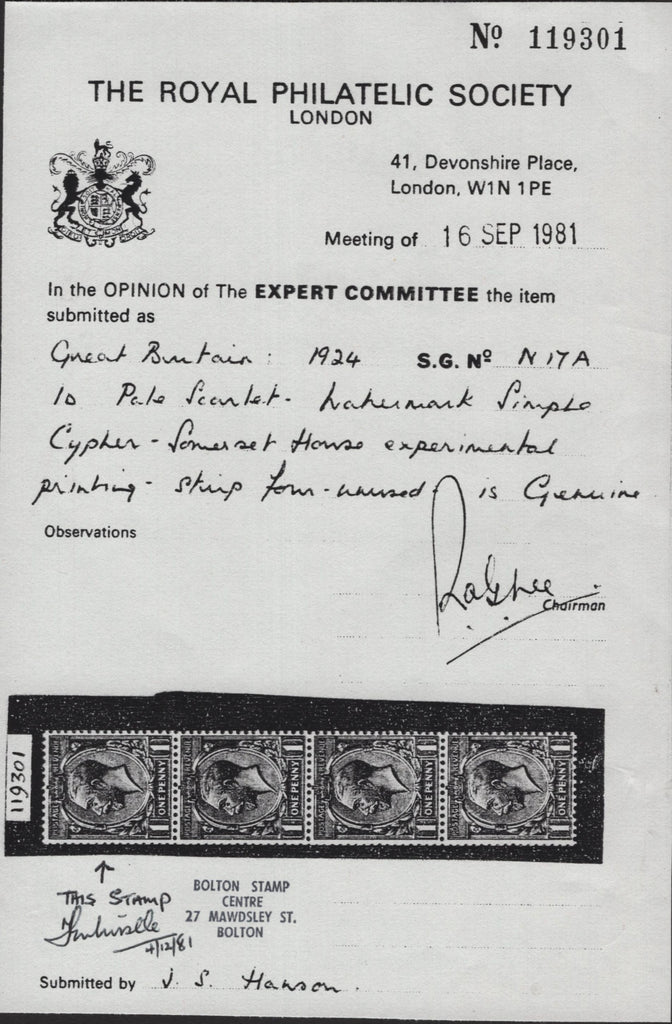 Nº 119301
THE ROYAL PHILATELIC SOCIETY
LONDON
41, Devonshire Place,
London, W1N 1PE
Meeting of 16 SEP 1981
In the OPINION of The EXPERT COMMITTEE the item
submitted as
Great Britain: 1924 S.G. Nº N17A
1D Pale Scarlet - Watermark Simple
Cypher - Somerset House experimental
printing - strip four - unused is Genuine
Observations
Chairman
119301
ONE PENNY ONE PENNY ONE PENNY ONE PENNY
THIS STAMP
4/12/81
BOLTON STAMP
CENTRE
27 MAWDSLEY ST.
BOLTON
Submitted by J. S. Hanson.